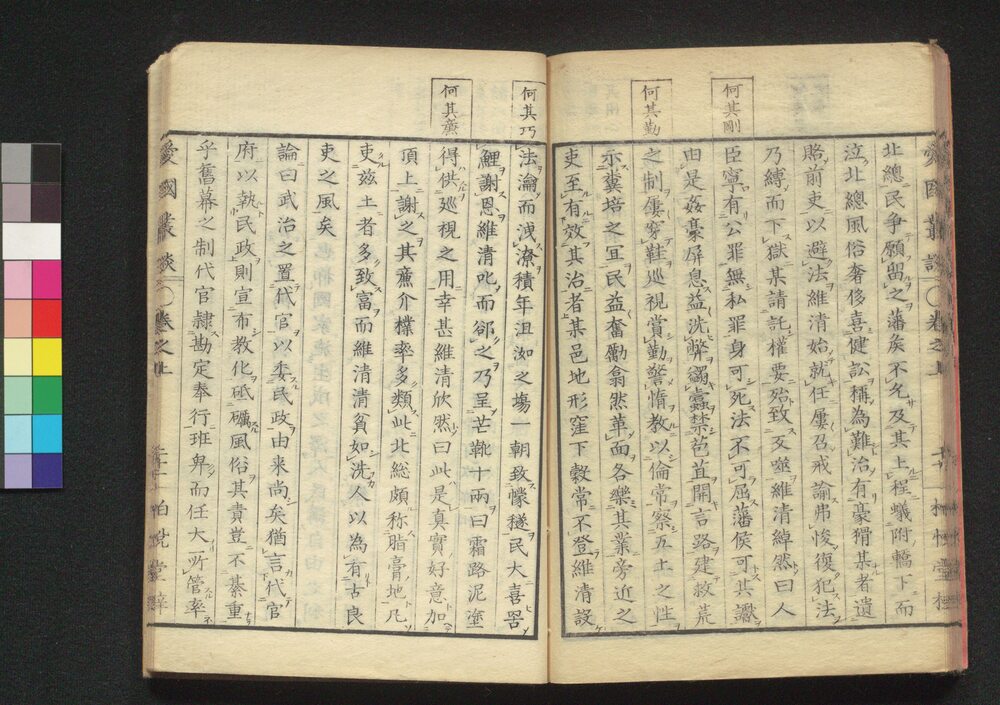 何其剛
何其勤
北總民爭願留之藩矦不允及其上程蟻附轎下而
泣北總風俗奢侈喜健訟稱為難治有豪猾某者遺
賂前吏以避法維清始就任屢召戒諭弗悛復犯法
乃縛而下獄某請託權要殆致反噬維清綽然曰人
臣寧有公罪無私罪身可死法不可屈藩侯可其讞
由是姦豪屏息益洗弊蠲蠹禁苞苴開言路建救荒
之制僂穿鞋巡視賞勤警惰教以倫常察五土之性
示糞培之冝民益奮勵翕然革面各樂其業旁近之
吏至有效其治者某邑地形窪下穀常不登維清設
何其巧
何其廉
法瀹而洩潦積年沮洳之塲一朝致穗民大喜罟
鯉謝恩維清叱而郤之乃呈芒鞋十兩曰霜路泥塗
得供巡視之用幸甚維清欣然曰此是真實好意加
頂上謝之其廉介樸率多類此北総頗称脂膏地凡
吏玆土者多致富而維清清貧如洗人以為有古良
吏之風矣
論曰武治之置代官以委民政由来尚矣猶言代官
府以執民政則宣布教化砥礪風俗其責豈不綦重
乎舊幕之制代官隷勘定奉行班卑而任大所管率
愛國叢談
卷之上